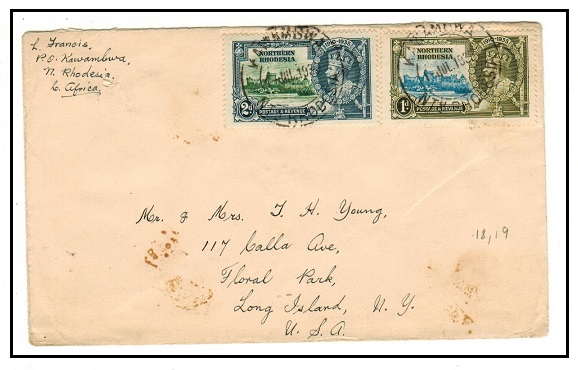 L. Francis,
P.O. Kawambwa,
N. Rhodesia,
C. Africa.
NORTHERN
RHODESIA
1910-1935
2d
POSTAGE & REVENUE
NORTHERN
RHODESIA
1910-1935
1d
POSTAGE & REVENUE
Mr. & Mrs. T. H. Young,
117 Calla Ave,
Floral Park,
Long Island, N. Y.
U. S. A.
18,19